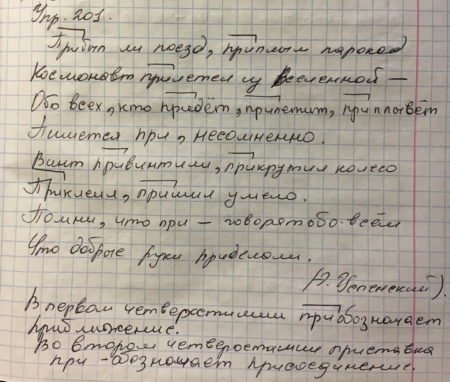 Упр. 201.
Прибыл ли поезд, приплыл пароход
Космонавт прилетел из Вселенной —
Обо всех, кто придёт, прилетит, приплывёт
Пишется при, несомненно.
Винт привинтили, прикрутил колесо
Приклеил, пришил умело.
Помни, что при — говорят обо всём
Что добрые руки приделали.
(А. Успенский).
В первом четверостишии при обозначает
приближение.
Во втором четверостишии приставка
при - обозначает присоединение.